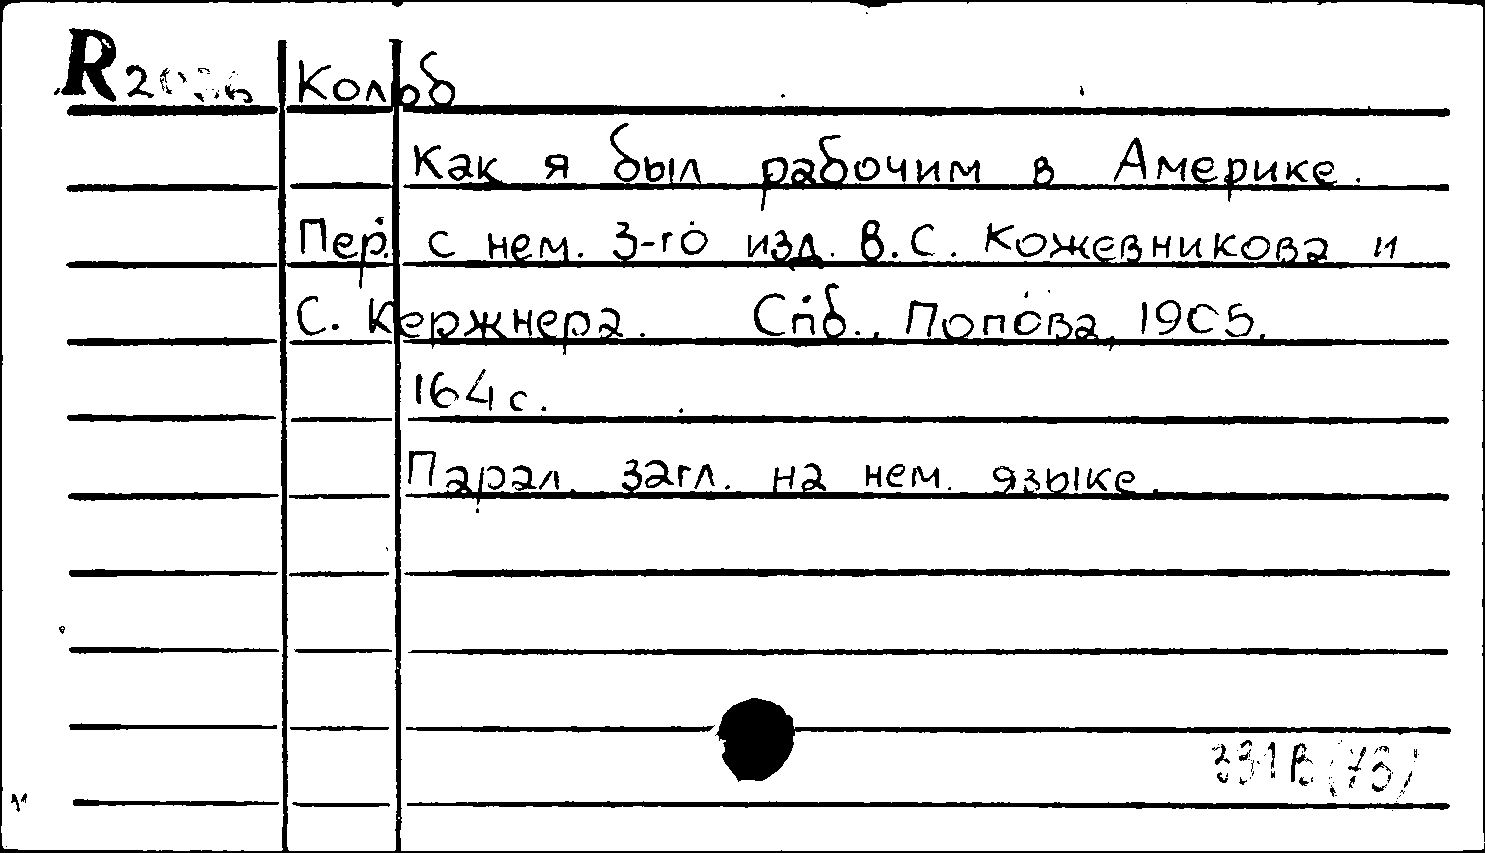 R 2036 Кольб
Как я был рабочим в Америке.
Пер. с нем. 3-го изд. В.С. Кожевникова и
С. Кержнера. Спб., Попова, 1905.
164 с.
Парал. загл. на нем. языке.
331В(73)